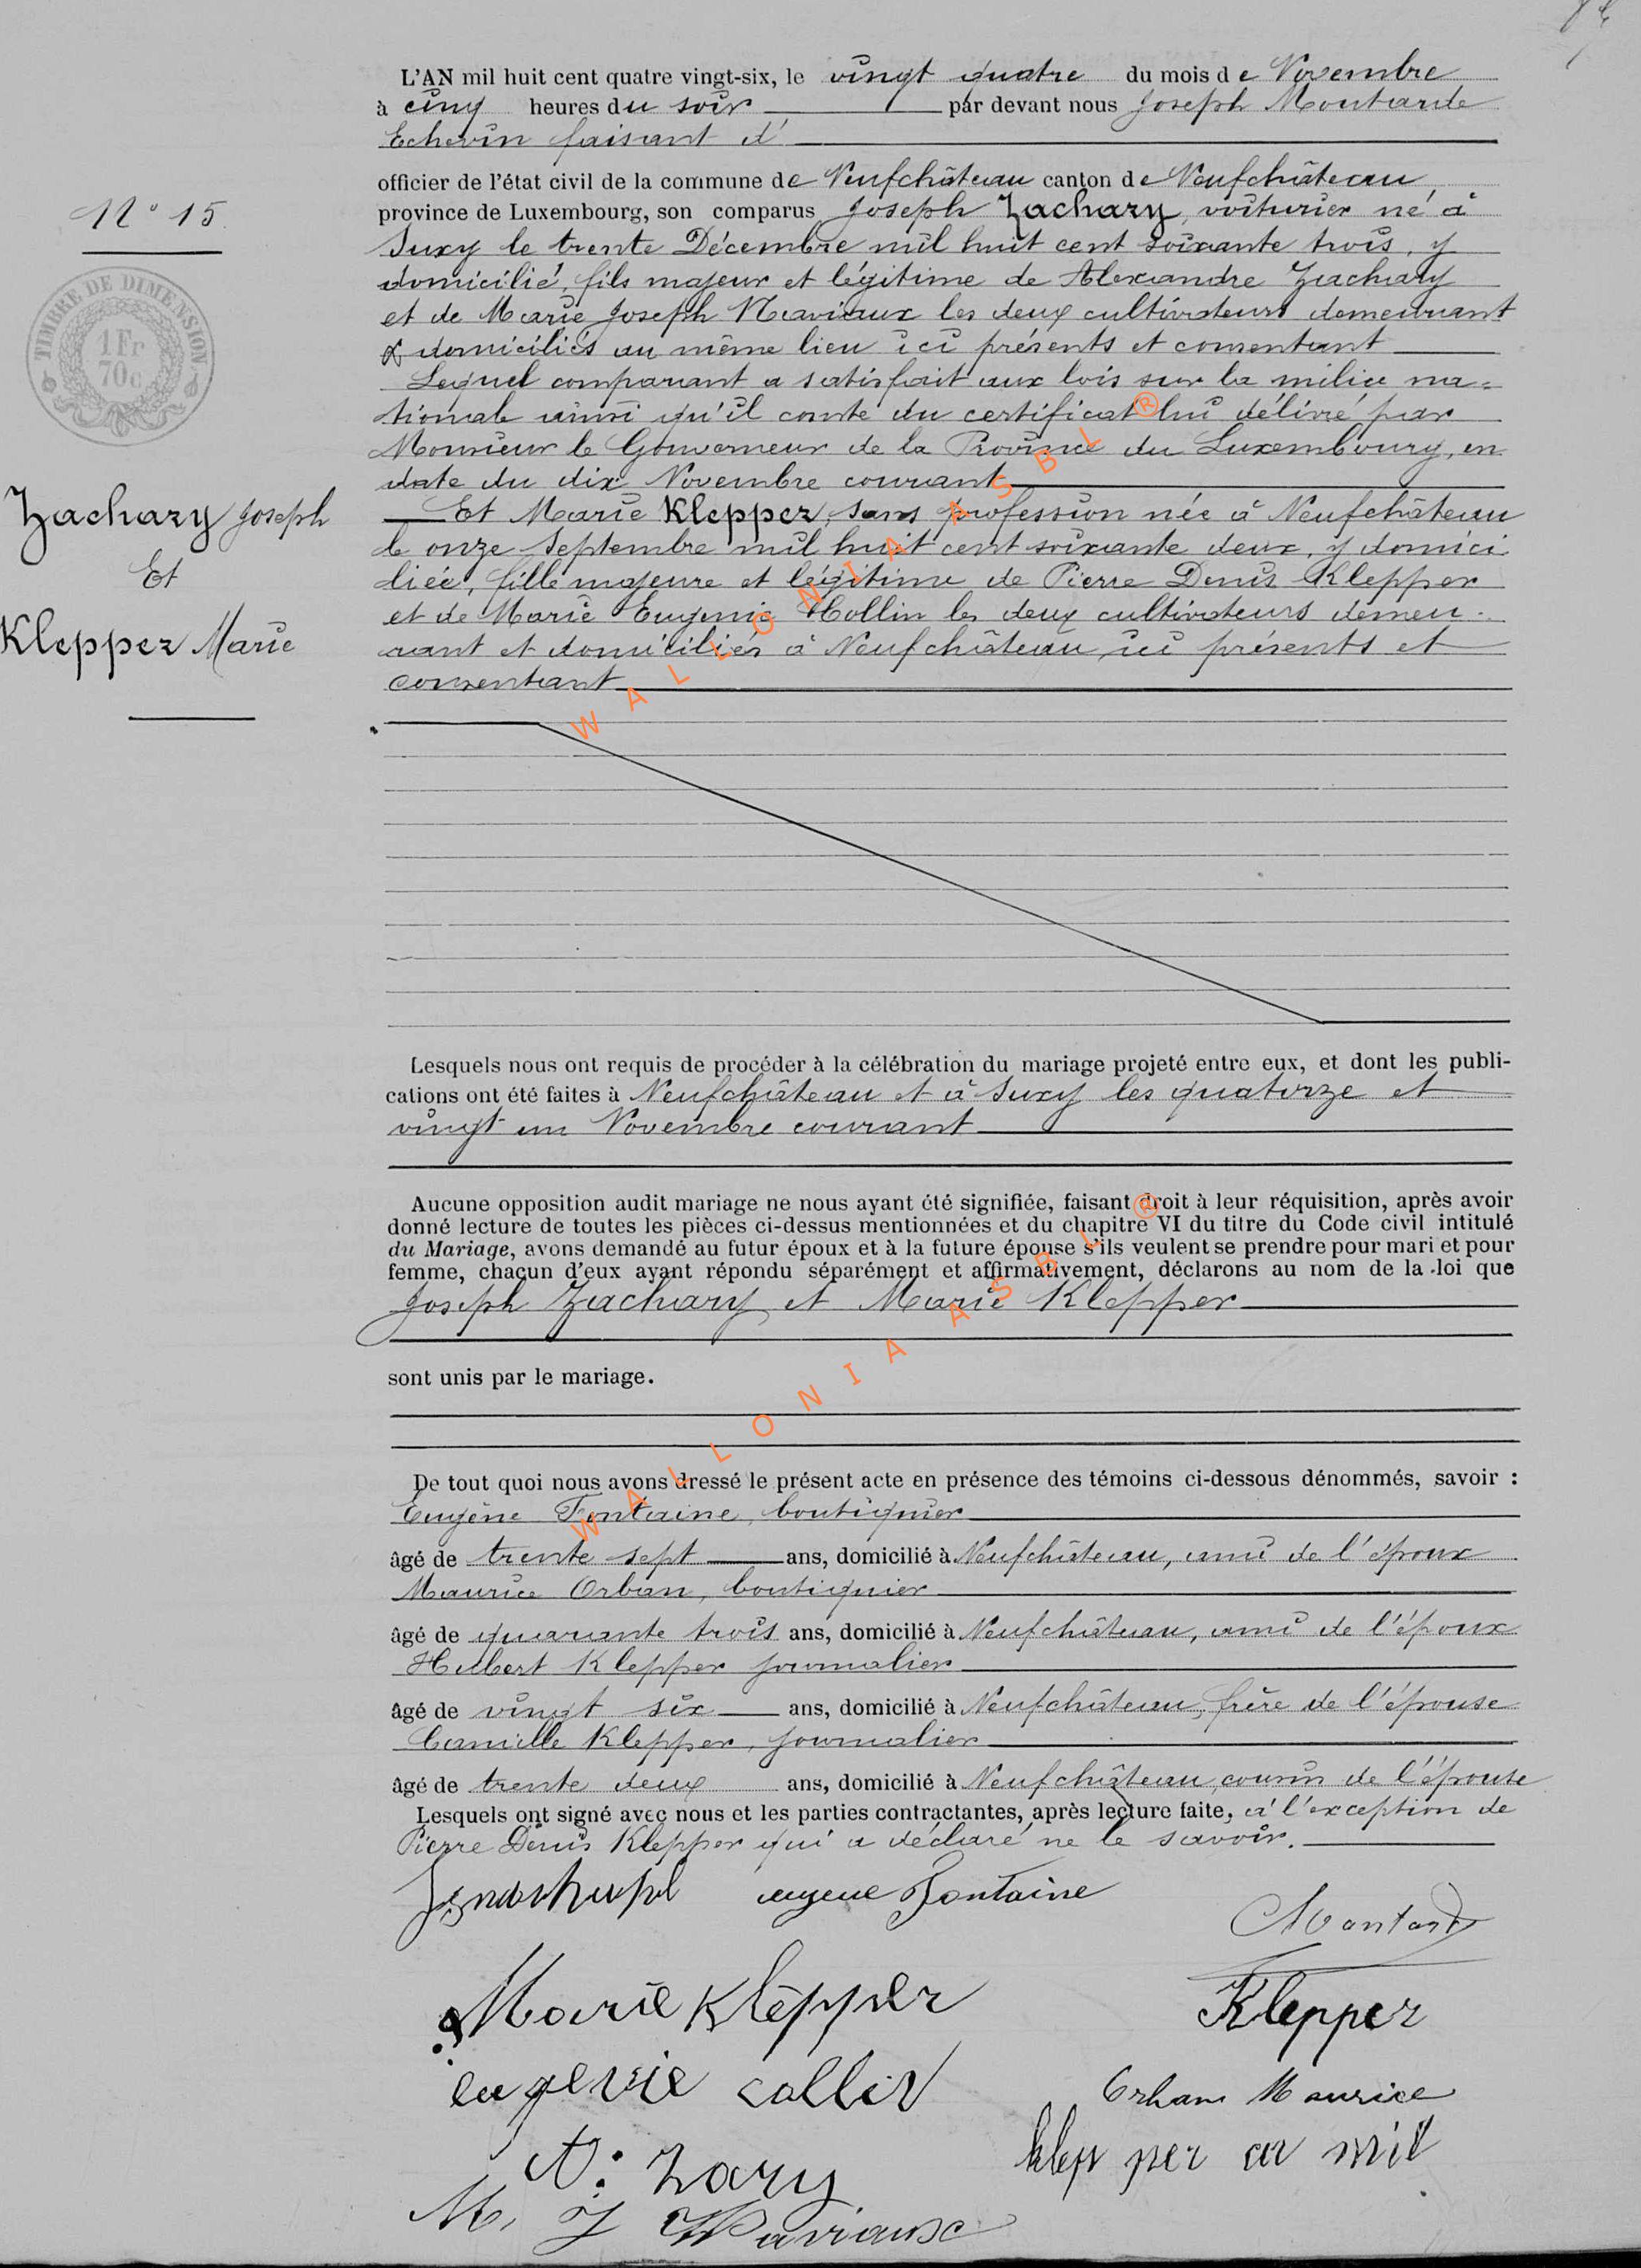 L'AN mil huit cent quatre vingt-six, le vingt quatre du mois de Novembre
à cinq heures du soir par devant nous Joseph Montarde
Echevin faisant d'
officier de l'état civil de la commune de Neufchâteau canton de Neufchâteau,
N° 15
province de Luxembourg, son comparus Joseph Zachary, voiturier né à
Suxy le trente Décembre mil huit cent soixante trois, y
TIMBRE DE DIMENSION
1 Fr
70c
domicilié, fils majeur et légitime de Alexandre Zachary
et de Marie Joseph Naviaux les deux cultivateurs demeurant
& domiciliés au même lieu ici présents et consentant
Lequel comparant a satisfait aux lois sur la milice na=
tionale ainsi qu'il conste du certificat lui délivré par
Monsieur le Gouverneur de la Province du Luxembourg, en
date du dix Novembre courant
Zachary Joseph
Et
Klepper Marie
Et Marie Klepper, sans profession née à Neufchâteau
le onze Septembre mil huit cent soixante deux, y domici
liée, fille majeure et légitime de Pierre Denis Klepper
et de Marie Eugenie Collin les deux cultivateurs demeu-
rant et domiciliés à Neufchâteau ici présents et
consentant
WALLONIA ASBL ®
Lesquels nous ont requis de procéder à la célébration du mariage projeté entre eux, et dont les publi-
cations ont été faites à Neufchâteau et à Suxy les quatorze et
vingt un Novembre courant
Aucune opposition audit mariage ne nous ayant été signifiée, faisant droit à leur réquisition, après avoir
donné lecture de toutes les pièces ci-dessus mentionnées et du chapitre VI du titre du Code civil intitulé
du Mariage, avons demandé au futur époux et à la future épouse s'ils veulent se prendre pour mari et pour
femme, chacun d'eux ayant répondu séparément et affirmativement, déclarons au nom de la loi que
Joseph Zachary et Marie Klepper
sont unis par le mariage.
WALLONIA ASBL ®
De tout quoi nous avons dressé le présent acte en présence des témoins ci-dessous dénommés, savoir :
Eugène Fontaine, boutiquier
âgé de trente sept ans, domicilié à Neufchâteau, ami de l'époux
Maurice Orban, boutiquier
âgé de quarante trois ans, domicilié à Neufchâteau, ami de l'époux
Hubert Klepper journalier
âgé de vingt six ans, domicilié à Neufchâteau, frère de l'épouse
Camille Klepper, journalier
âgé de trente deux ans, domicilié à Neufchâteau, cousin de l'épouse
Lesquels ont signé avec nous et les parties contractantes, après lecture faite, à l'exception de
Pierre Denis Klepper qui a déclaré ne le savoir.
eugene Fontaine
Montard
Marie Klepper
Klepper
eugenie collin
Orban Maurice
A: Zary
klepper ca mil
M. J Naviaux